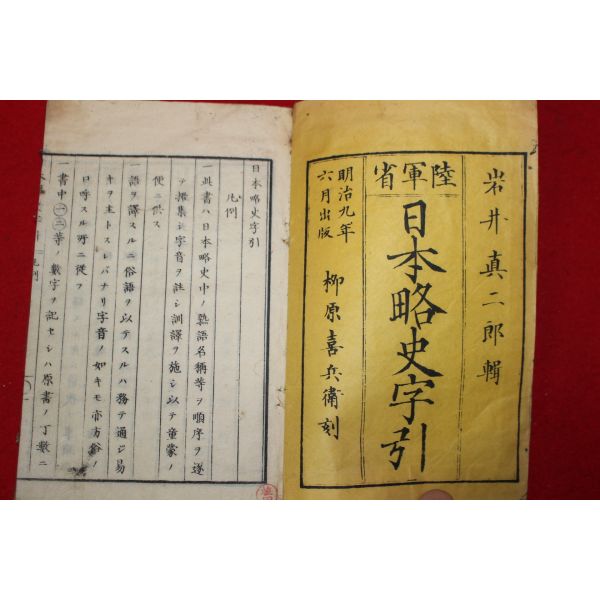 岩井真二郎輯
陸軍省
日本略史字引
明治九年
六月出版
柳原喜兵衛刻
日本略史字引
凡例
一此書ハ日本略史中ノ熟語名稱等ヲ順序ヲ逐
テ揖集シ字音ヲ註シ訓譯ヲ施シ以テ童蒙ノ
便ニ供ス
一語ヲ譯スルニ俗語ヲ以テスルハ務テ通シ易
キヲ主トスレバナリ字音ノ如キモ亦方俗ノ
口呼スル所ニ從フ
一書中㊀㊁等ノ數字ヲ記セシハ原書ノ丁數ニ
凡例